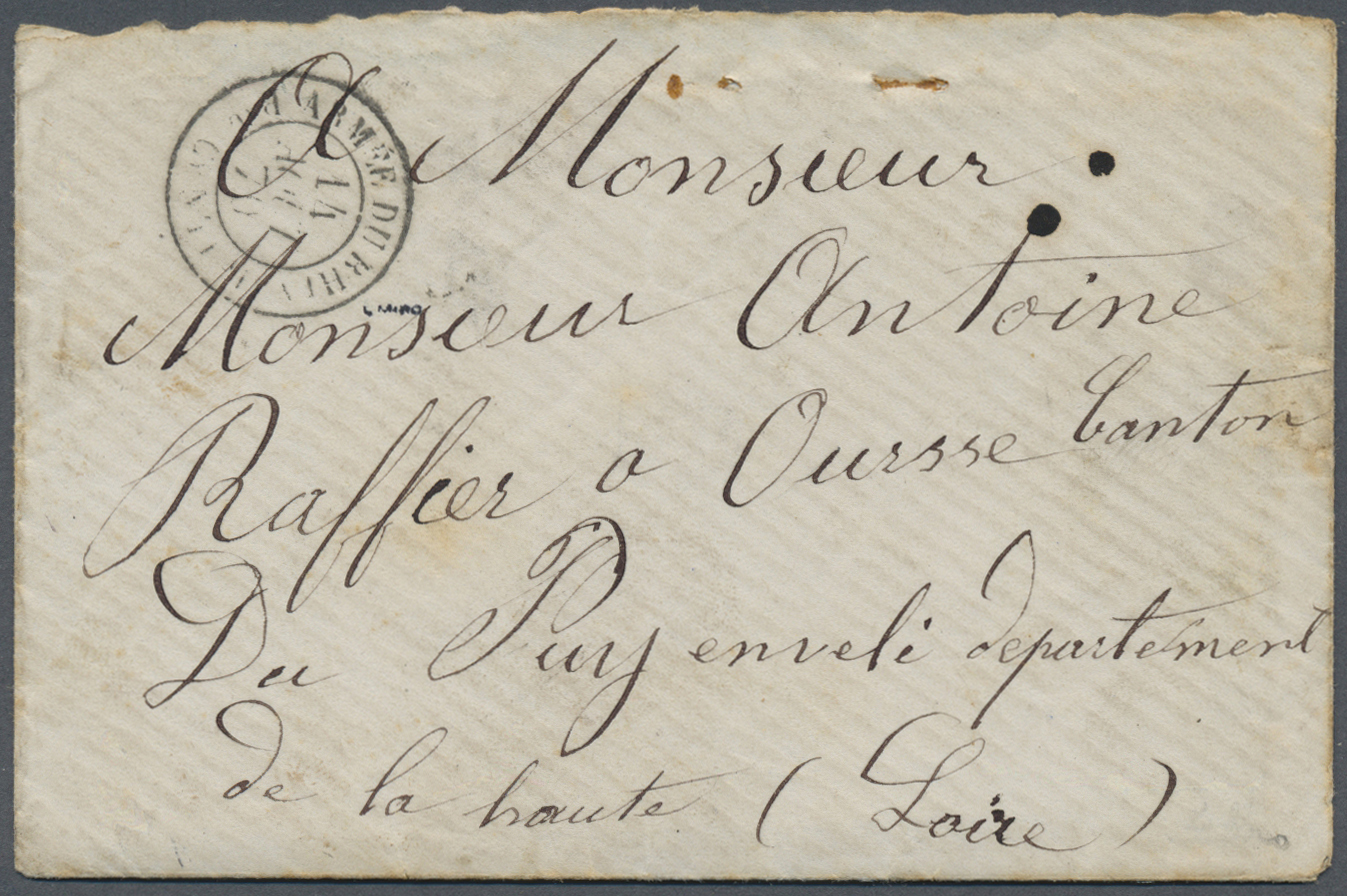 A Monsieur
Monsieur Antoine
Raffier a Oursse Canton
Du Puy enveli departement
de la haute (Loire)
ARMÉE DU RHIN
14
70